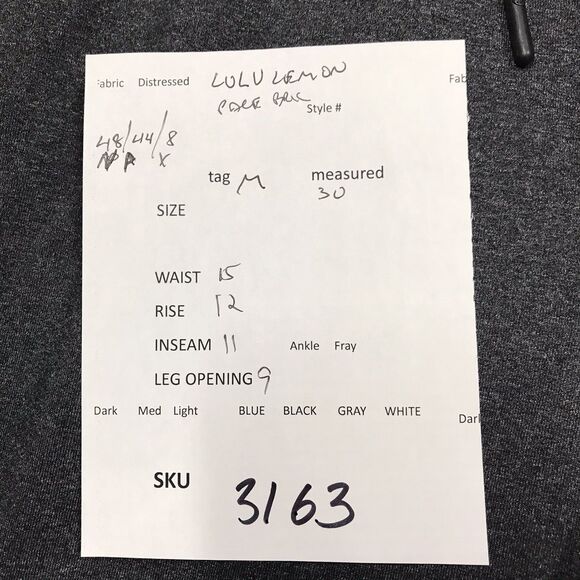 Fabric Distressed LULULEMON Fab
Style #
48/44/8
N A X
tag M measured
30
SIZE
WAIST 15
RISE 12
INSEAM 11 Ankle Fray
LEG OPENING 9
Dark Med Light BLUE BLACK GRAY WHITE Dark
SKU 3163